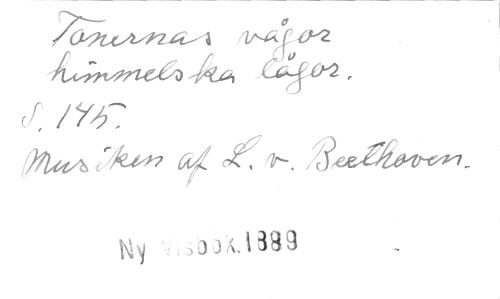 Tonernas vågor
himmelska lågor.
S. 145.
Musiken af L. v. Beethoven.
Ny Visbok. 1889